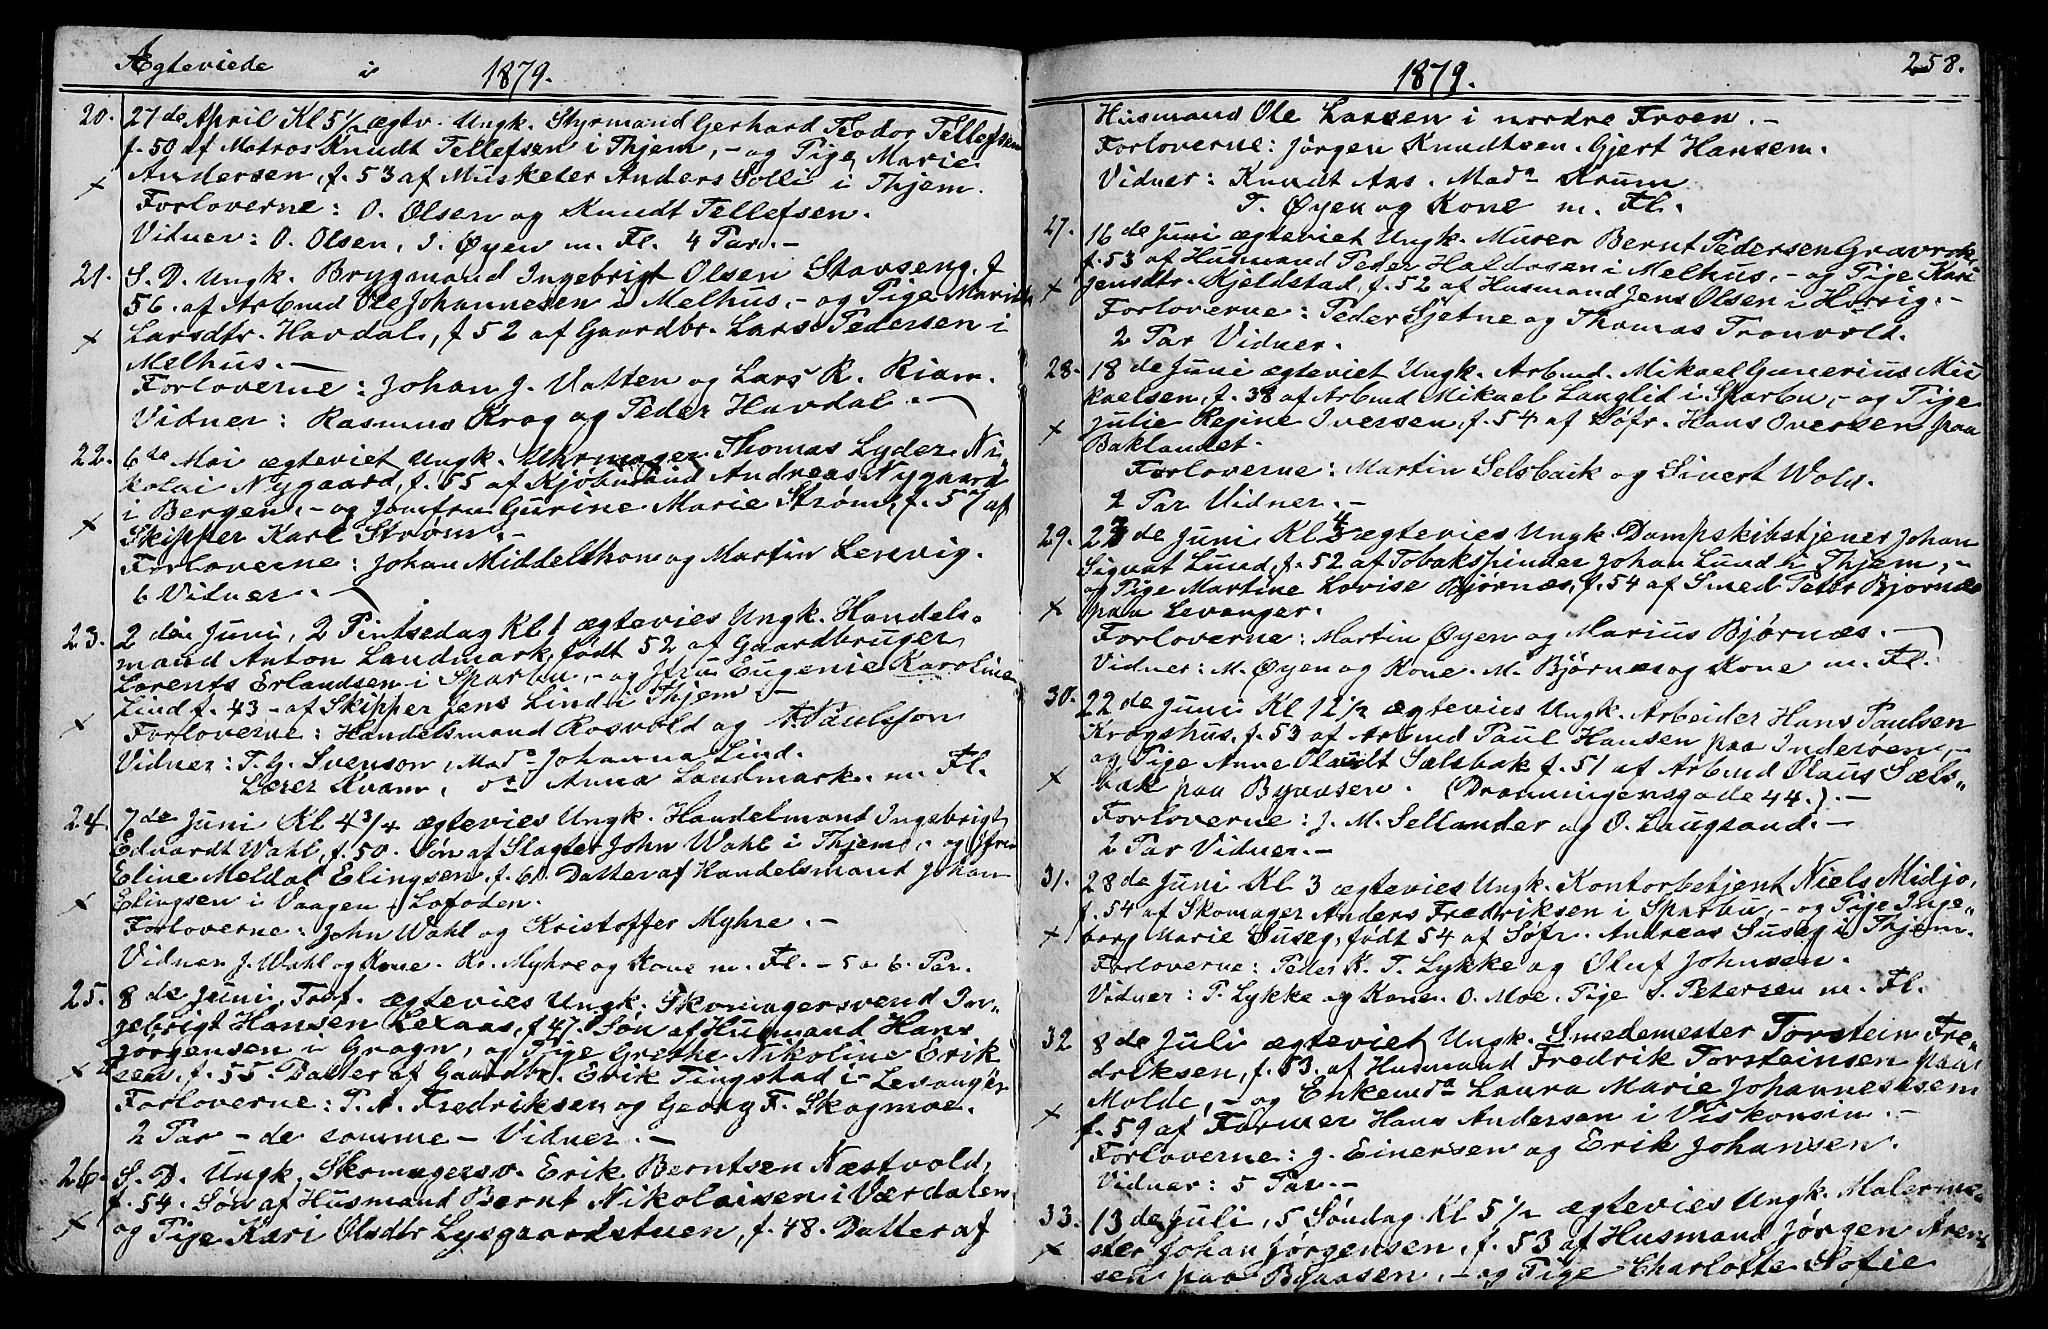 Ægteviede i 1879.
20. 27de April Kl 5½ ægtv. Ungk. Styrmand Gerhard Teodor Tellefsen
f. 50 af Matros Knudt Tellefsen i Thjem, - og Pige Marie
Andersen, f. 53 af Musketer Anders Solli i Thjem.
Forloverne: O. Olsen og Knudt Tellefsen.
Vidner: O. Olsen, I. Øyen m. Fl. 4 Par. -
21. S. D. Ungk. Brygmand Ingebrigt Olsen Stavseng, f.
56. af Arbmd Ole Johannesen i Melhus, - og Pige Marith
Larsdtr. Havdal, f 52 af Gaardbr. Lars Pedersen i
Melhus. -
Forloverne: Johan J. Vatten og Lars R. Riam.
Vidner: Rasmus Krog og Peder Havdal. -
22. 6te Mai ægteviet Ungk. Uhrmager Thomas Lyder Ni-
kolai Nygaard, f. 55 af Kjøbmand Andreas Nygaard
i Bergen, - og Jomfru Gurine Marie Strøm, f. 57 af
Skipper Karl Strøm. -
Forloverne: Johan Middelthon og Martin Lenvig.
6 Vidner. -
23. 2den Juni, 2 Pintsedag Kl 1 ægtevies Ungk. Handels-
mand Anton Landmark, født 52 af Gaardbruger
Lorents Erlandsen i Sparbu, - og Jfru Eugenie Karoline
Lind f. 43 - af Skipper Jens Lind i Thjem. -
Forloverne: Handelsmand Rosvold og A Paulsson
Vidner: T. G. Svenson, Mada Johanna Lind.
Lærer Kvam, Anna Landmark. m. Fl.
24. 7de Juni Kl 4¾ ægtevies Ungk. Handelmand Ingebrigt
Eduardt Wahl, f. 50. Søn af Slagter John Wahl i Thjem, - og Jfru
Eline Meldal Elingsen, f. 61. Datter af Handelsmand Johan
Elingsen i Vaagen i Lofoden.
Forloverne: John Wahl og Kristoffer Myhre. -
Vidner J. Wahl og Kone. Kr. Myhre og Kone m. Fl. - 5 a 6. Par.
25. 8de Juni, Tref. ægtevies Ungk. Skomagersvend In-
gebrigt Hansen Lexaas, f. 47. Søn af Husmand Hans
Jørgensen i Grogn, og Pige Grethe Nikoline Erik
sen, f. 55. Datter af Gaardbr. Erik Tingstad i Levanger
Forloverne: P. A. Fredriksen og Georg F. Skogmoe.
2 Par - de samme - Vidner. -
26. S. D. Ungk. Skomagersv. Erik Berntsen Næstvold,
f. 54. Søn af Husmand Bernt Nikolaisen i Værdalen
og Pige Kari Olsdtr Lysgaardstuen, f. 48. Datter af
1879. 258.
Husmand Ole Larsen i nordre Froen. -
Forloverne: Jørgen Knudtsen. Gjert Hansem.
Vidner: Knudt Aas. Mada Krum
T. Øyen og Kone m. Fl.
27. 16de Juni ægteviet Ungk. Murer Bernt Pedersen Gravrok,
f. 53 af Husmand Peder Haldosen i Melhus, - og Pige Kari
Jensdtr. Kjeldstad, f. 52 af Husmand Jens Olsen i Horrig. -
Forloverne: Peder Sjetne og Thomas Tronvold.
2 Par Vidner.
28. 18de Juni ægteviet Ungk. Arbmd. Mikael Gunerius Mi-
kaelsen, f. 38 af Arbmd Mikael Langlid i Sparbu, - og Pige
Julie Regine Iversen, f. 54 af Søfr. Hans Iversen paa
Baklandet.
Forloverne: Martin Selsbaik og Sivert Wold.
2 Par Vidner. -
29. 22de Juni Kl 4 ægtevies Ungk. Dampskibstjener Johan
Sigvat Lund, f. 52 af Tobakspinder Johan Lund i Thjem, -
og Pige Martine Lovise Bjørnæs, f. 54 af Smed Peter Bjørnæs
paa Levanger.
Forloverne: Martin Øyen og Marius Bjørnæs. -
Vidner: M. Øyen og Kone. M. Bjørnæs og Kone m. Fl.
30. 22de Juni Kl 12½ ægtevies Ungk. Arbeider Hans Paulsen
Krogshus, f. 53 af Arbmd Paul Hansen paa Inderøen, -
og Pige Anne Olaudt Sælsbak f. 51 af Arbmd Olaus Sæls-
bak paa Byaasen. (Dronningensgade 44.). -
Forloverne: J. M. Sellander og O. Laugsand. -
2 Par Vidner. -
31. 28de Juni Kl 3 ægtevies Ungk. Kontorbetjent Niels Midjo,
f. 54 af Skomager Anders Fredriksen i Sparbu, - og Pige Inge-
borg Marie Suseg, født 54 af Søfr. Andreas Suseg i Thjem.
Forloverne: Peder K. T. Lykke og Oluf Johnsen.
Vidner: P. Lykke og Kone. O. Moe. Pige S. Petersen m. Fl.
32 8de Juli ægteviet Ungk. Smedemester Torstein Fre-
driksen, f. 53. af Husmand Fredrik Torsteinsen paa
Molde, - og Enkemda Laura Marie Johannesen
f. 59 af Farmer Hans Andersen i Viskonsin. -
Forloverne: J. Einersen og Erik Johansen.
Vidner: 5 Par. -
33. 13de Juli, 5 Søndag Kl 5½ ægtevies Ungk. Malerme-
ster Johan Jørgensen, f. 53 af Husmand Jørgen Arent
sen paa Byaasen, - og Pige Charlotte Sofie